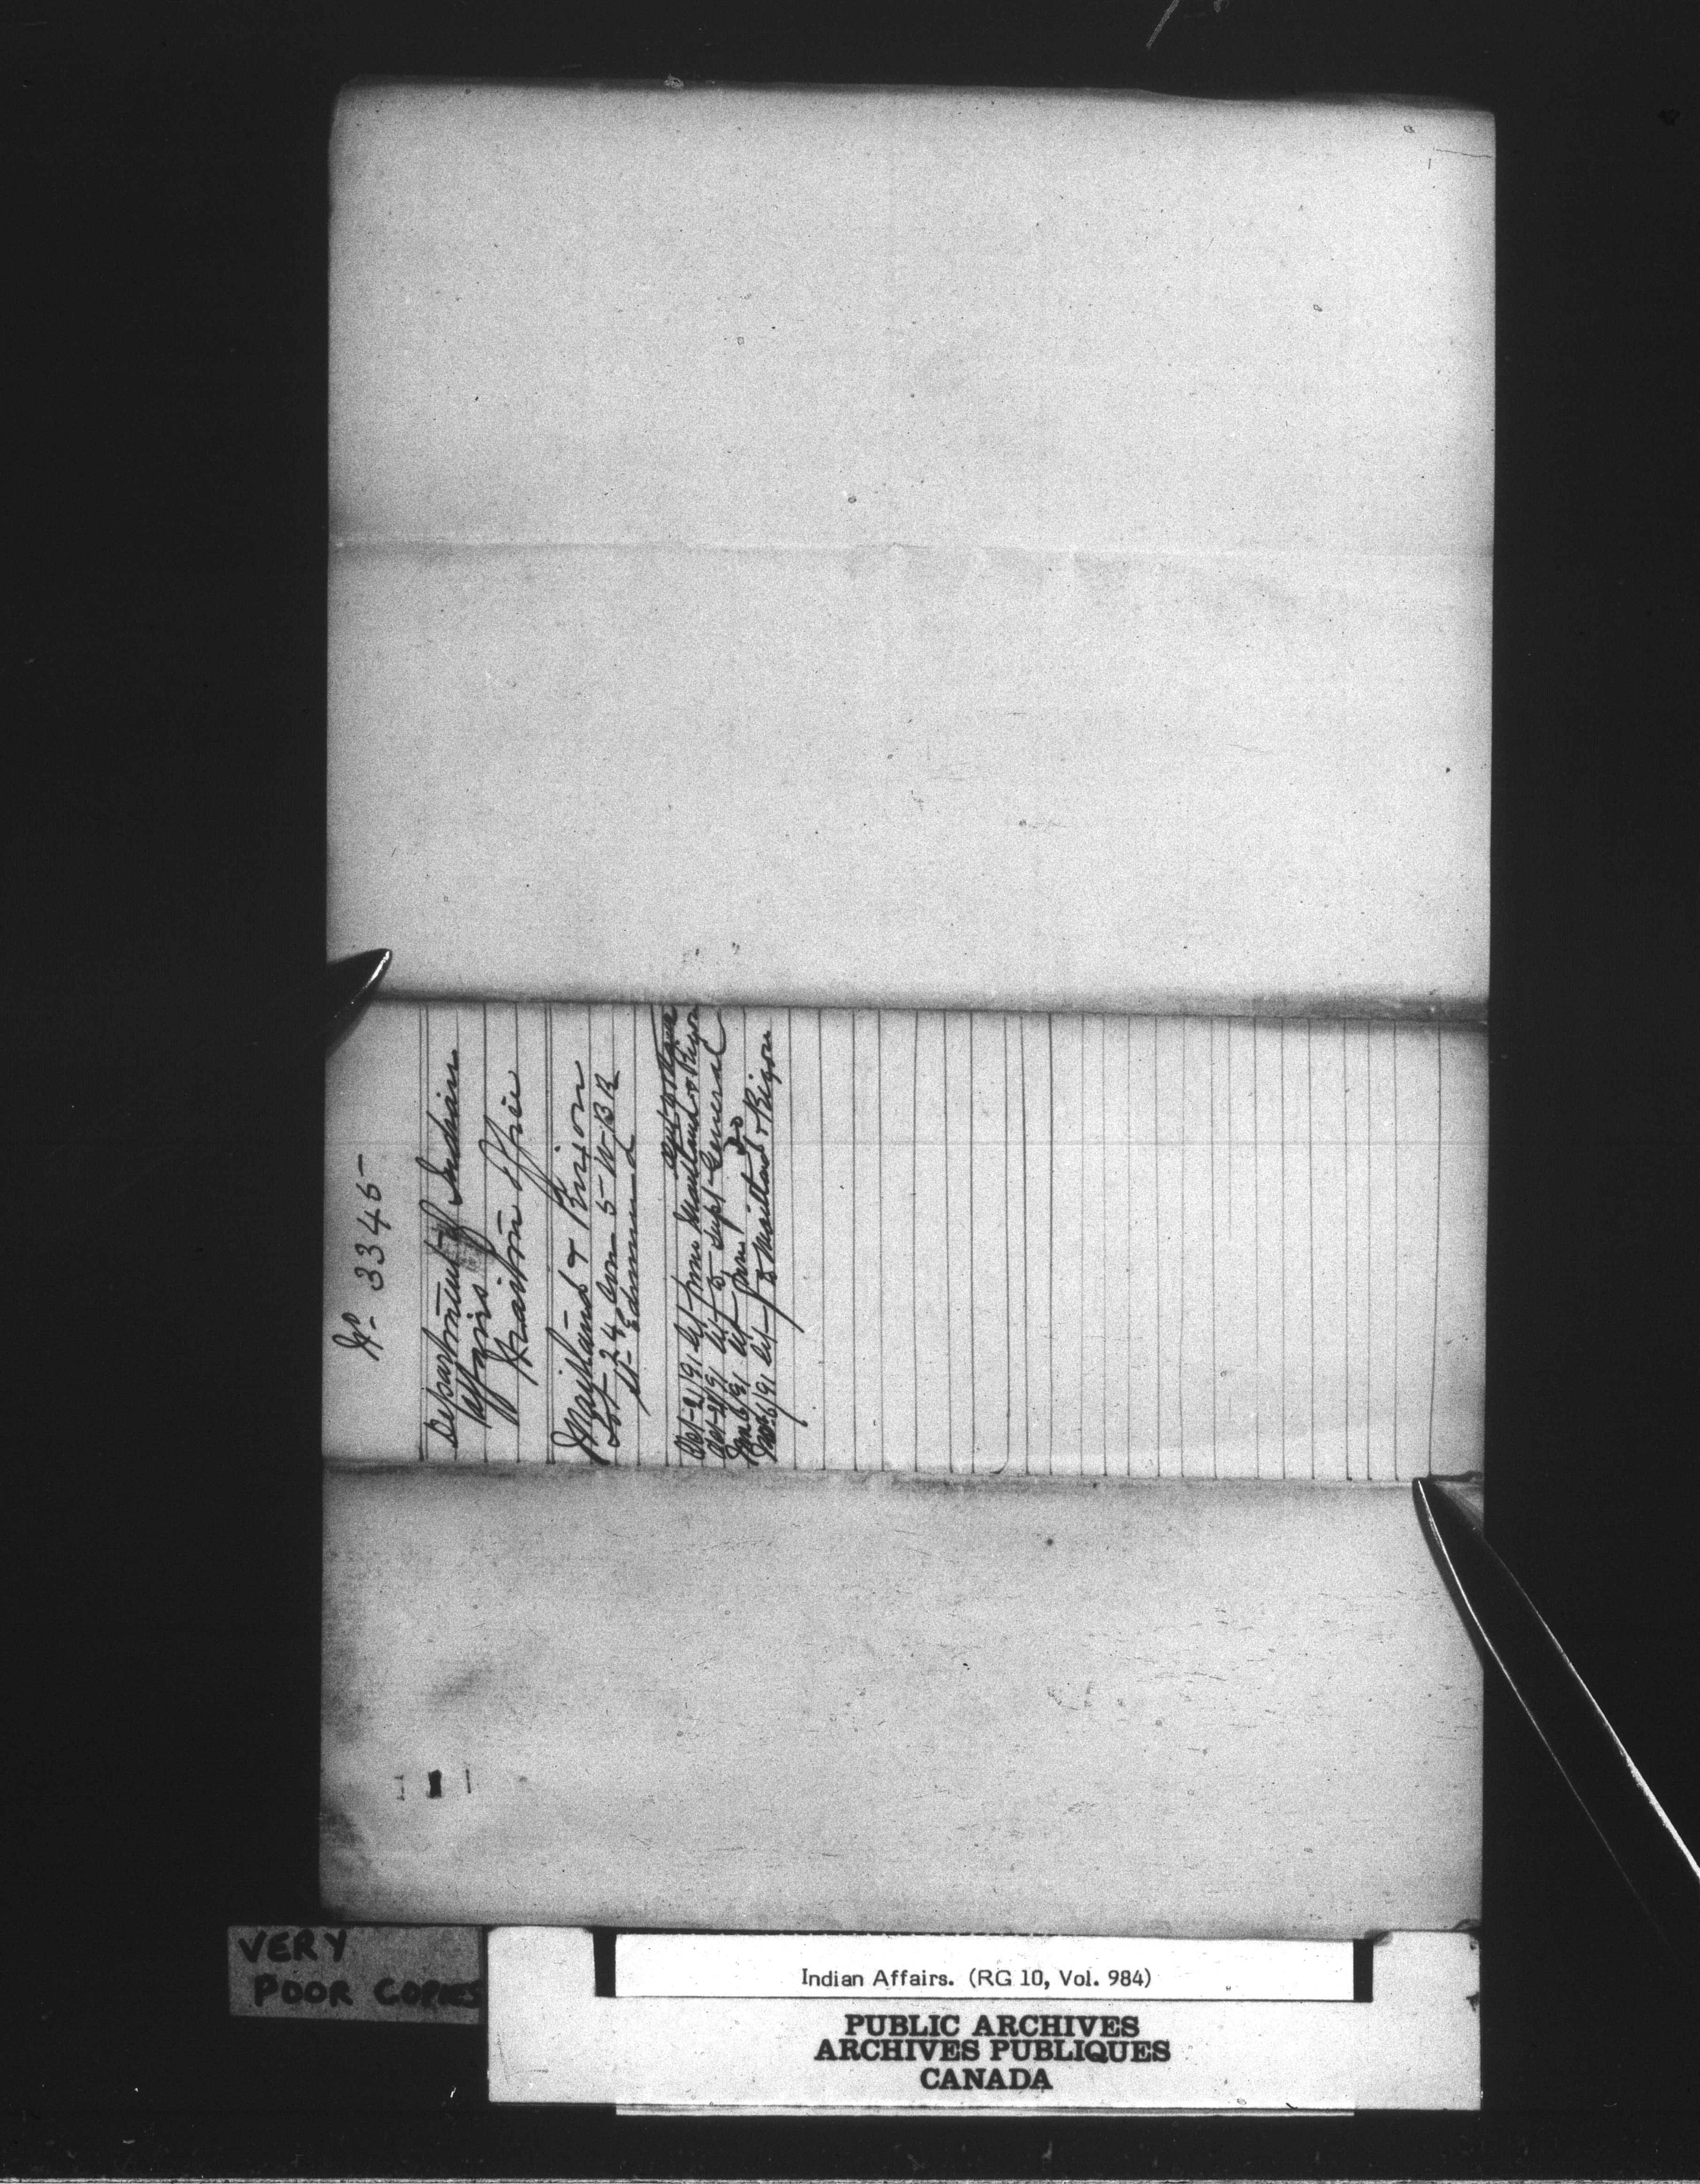 No 3345
Department of Indian
Affairs
Wiarton Office
Maitland & Rixon
Lot 24 Con 5 W B R
St Edmund
Oct 2/91 let from Maitland & Rixon
Oct 2/91 let to Supt General
Jan 6/91 let from Do
6/91 let to Maitland & Rixon
VERY
POOR COPIES
Indian Affairs. (RG 10, Vol. 984)
PUBLIC ARCHIVES
ARCHIVES PUBLIQUES
CANADA